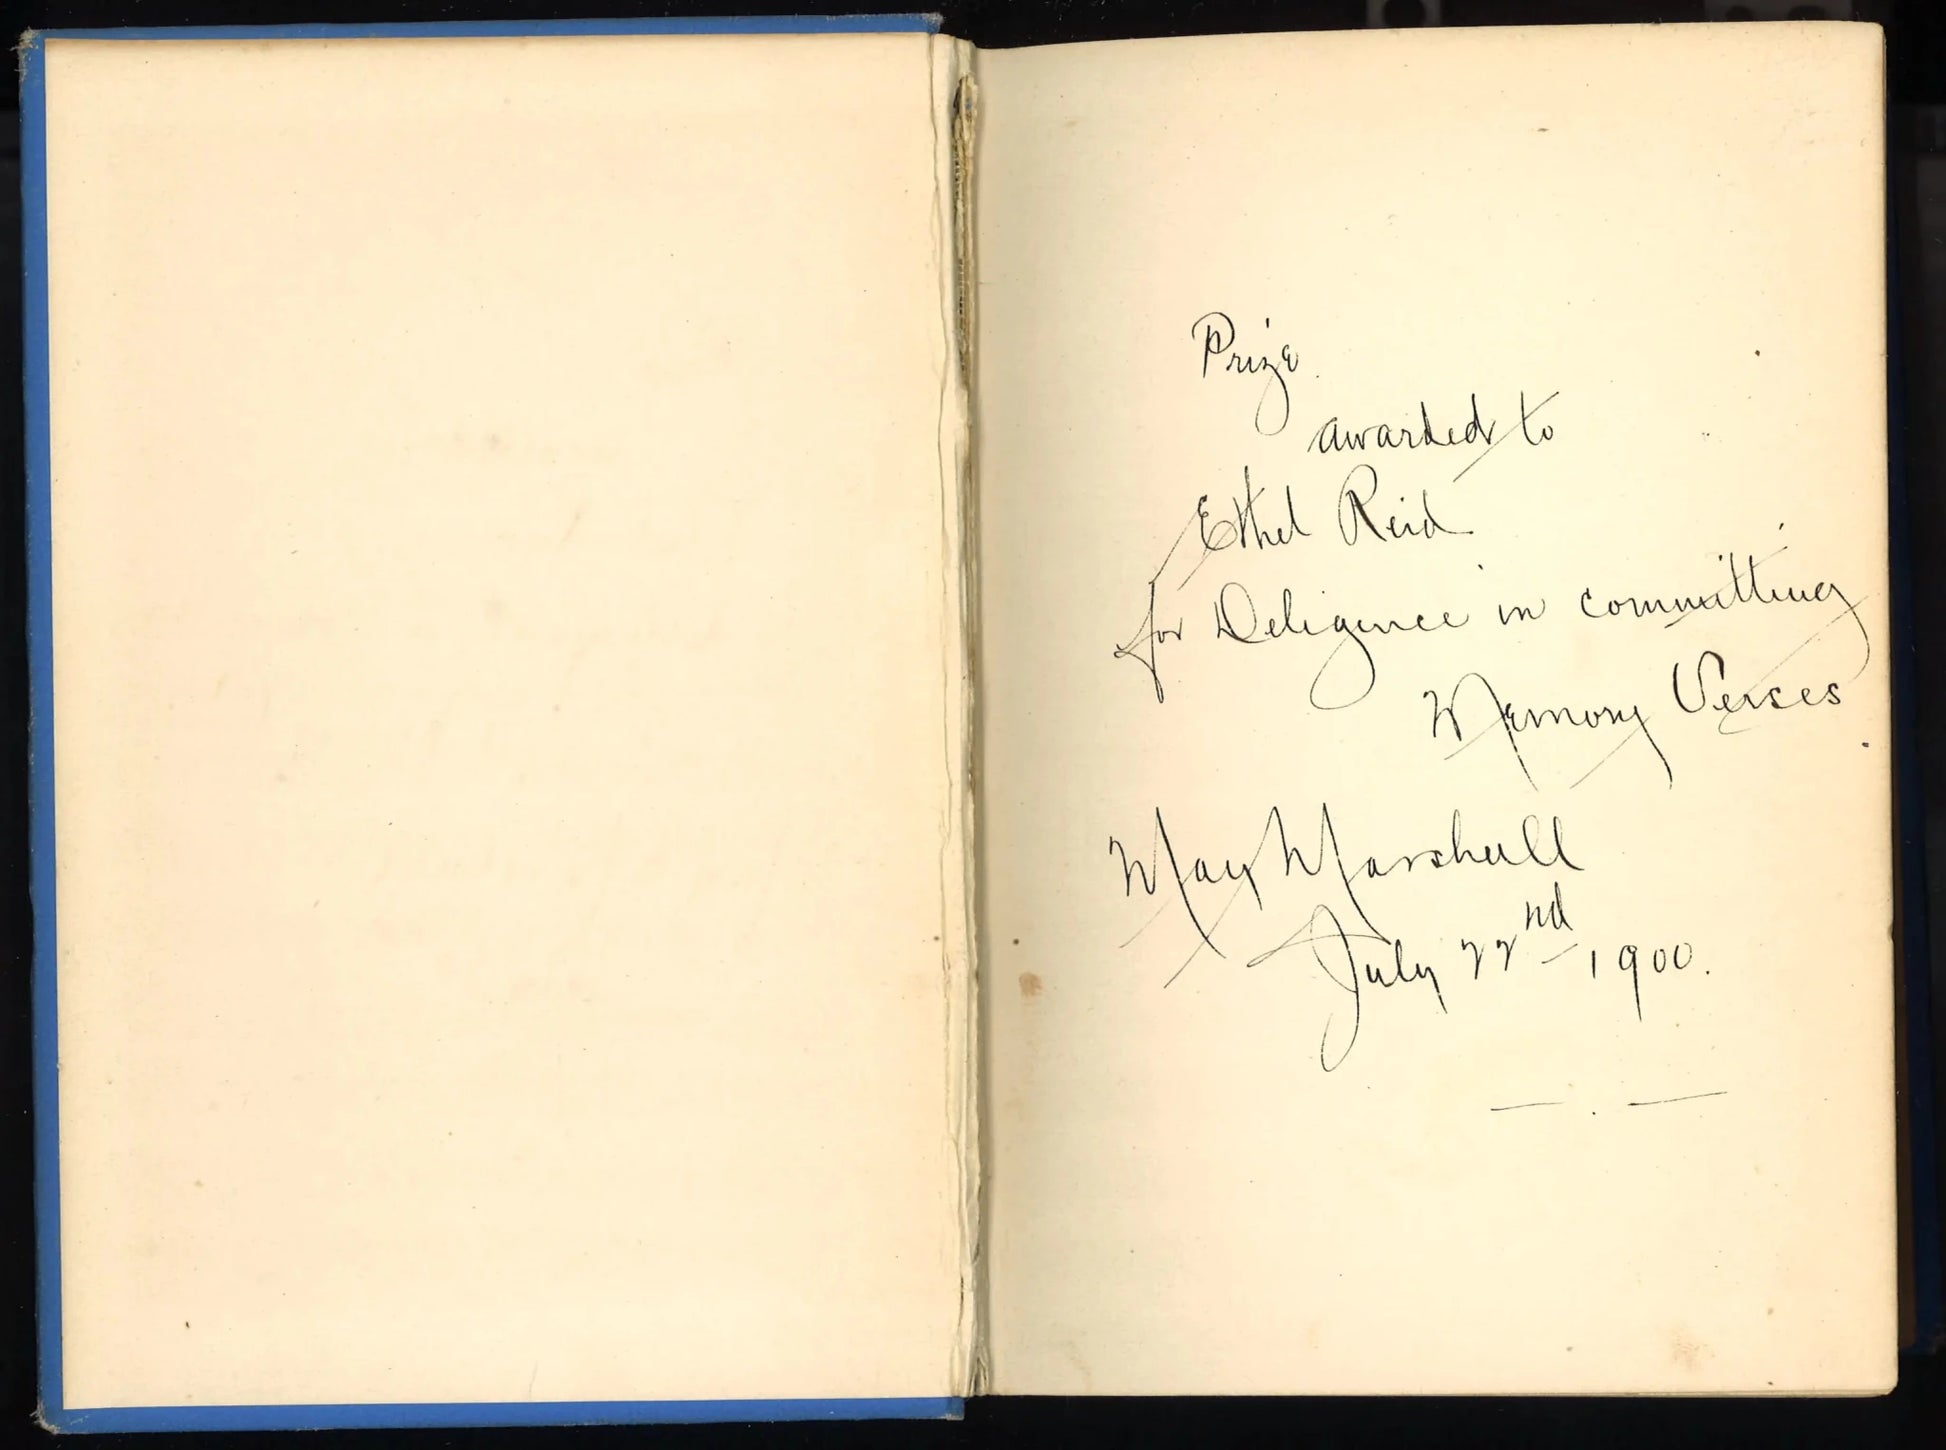 Prize
awarded to
Ethel Reid
for Deligence in committing
Memory Verses
May Marshall
July 22nd 1900.